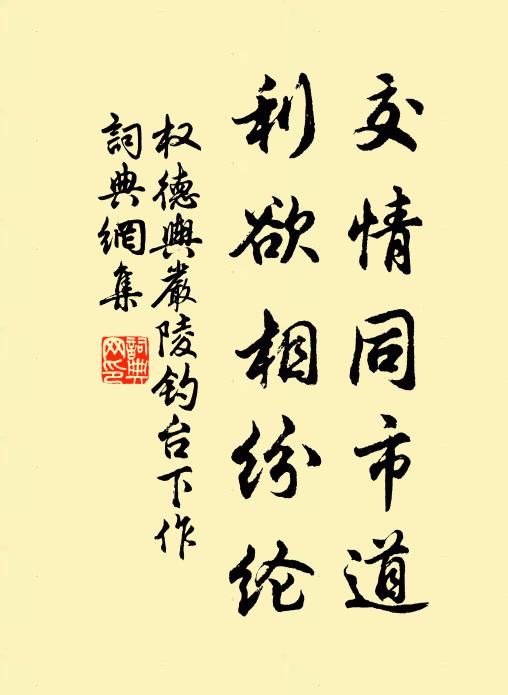 交情同市道
利欲相纷纶
权德舆严陵钓台下作
詞典網集
詞典网印